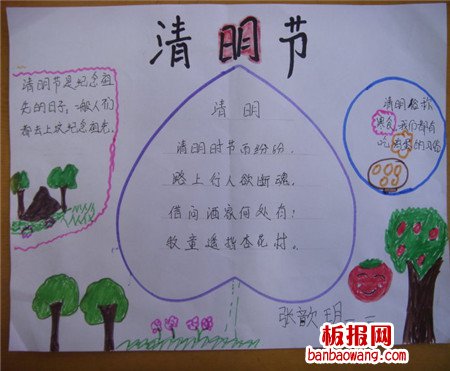 清明节
清明节是纪念祖
先的日子,一般人们
都去上坟纪念祖先。
清明
清明时节雨纷纷,
路上行人欲断魂。
借问酒家何处有:
牧童遥指杏花村。
清明俗称
寒食,我们都有
吃
的习俗
张歆玥
板报网
banbaowang.com